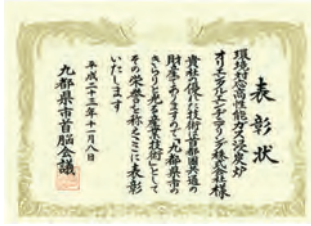 表彰状
環境対応高性能ガス浸炭炉
オリエンタルエンヂニアリング株式会社様
貴社の優れた技術は首都圏共通の
財産でありますので「九都県市の
きらりと光る産業技術」として
その栄誉を称えここに表彰
いたします
平成二十三年十一月八日
九都県市首脳会議